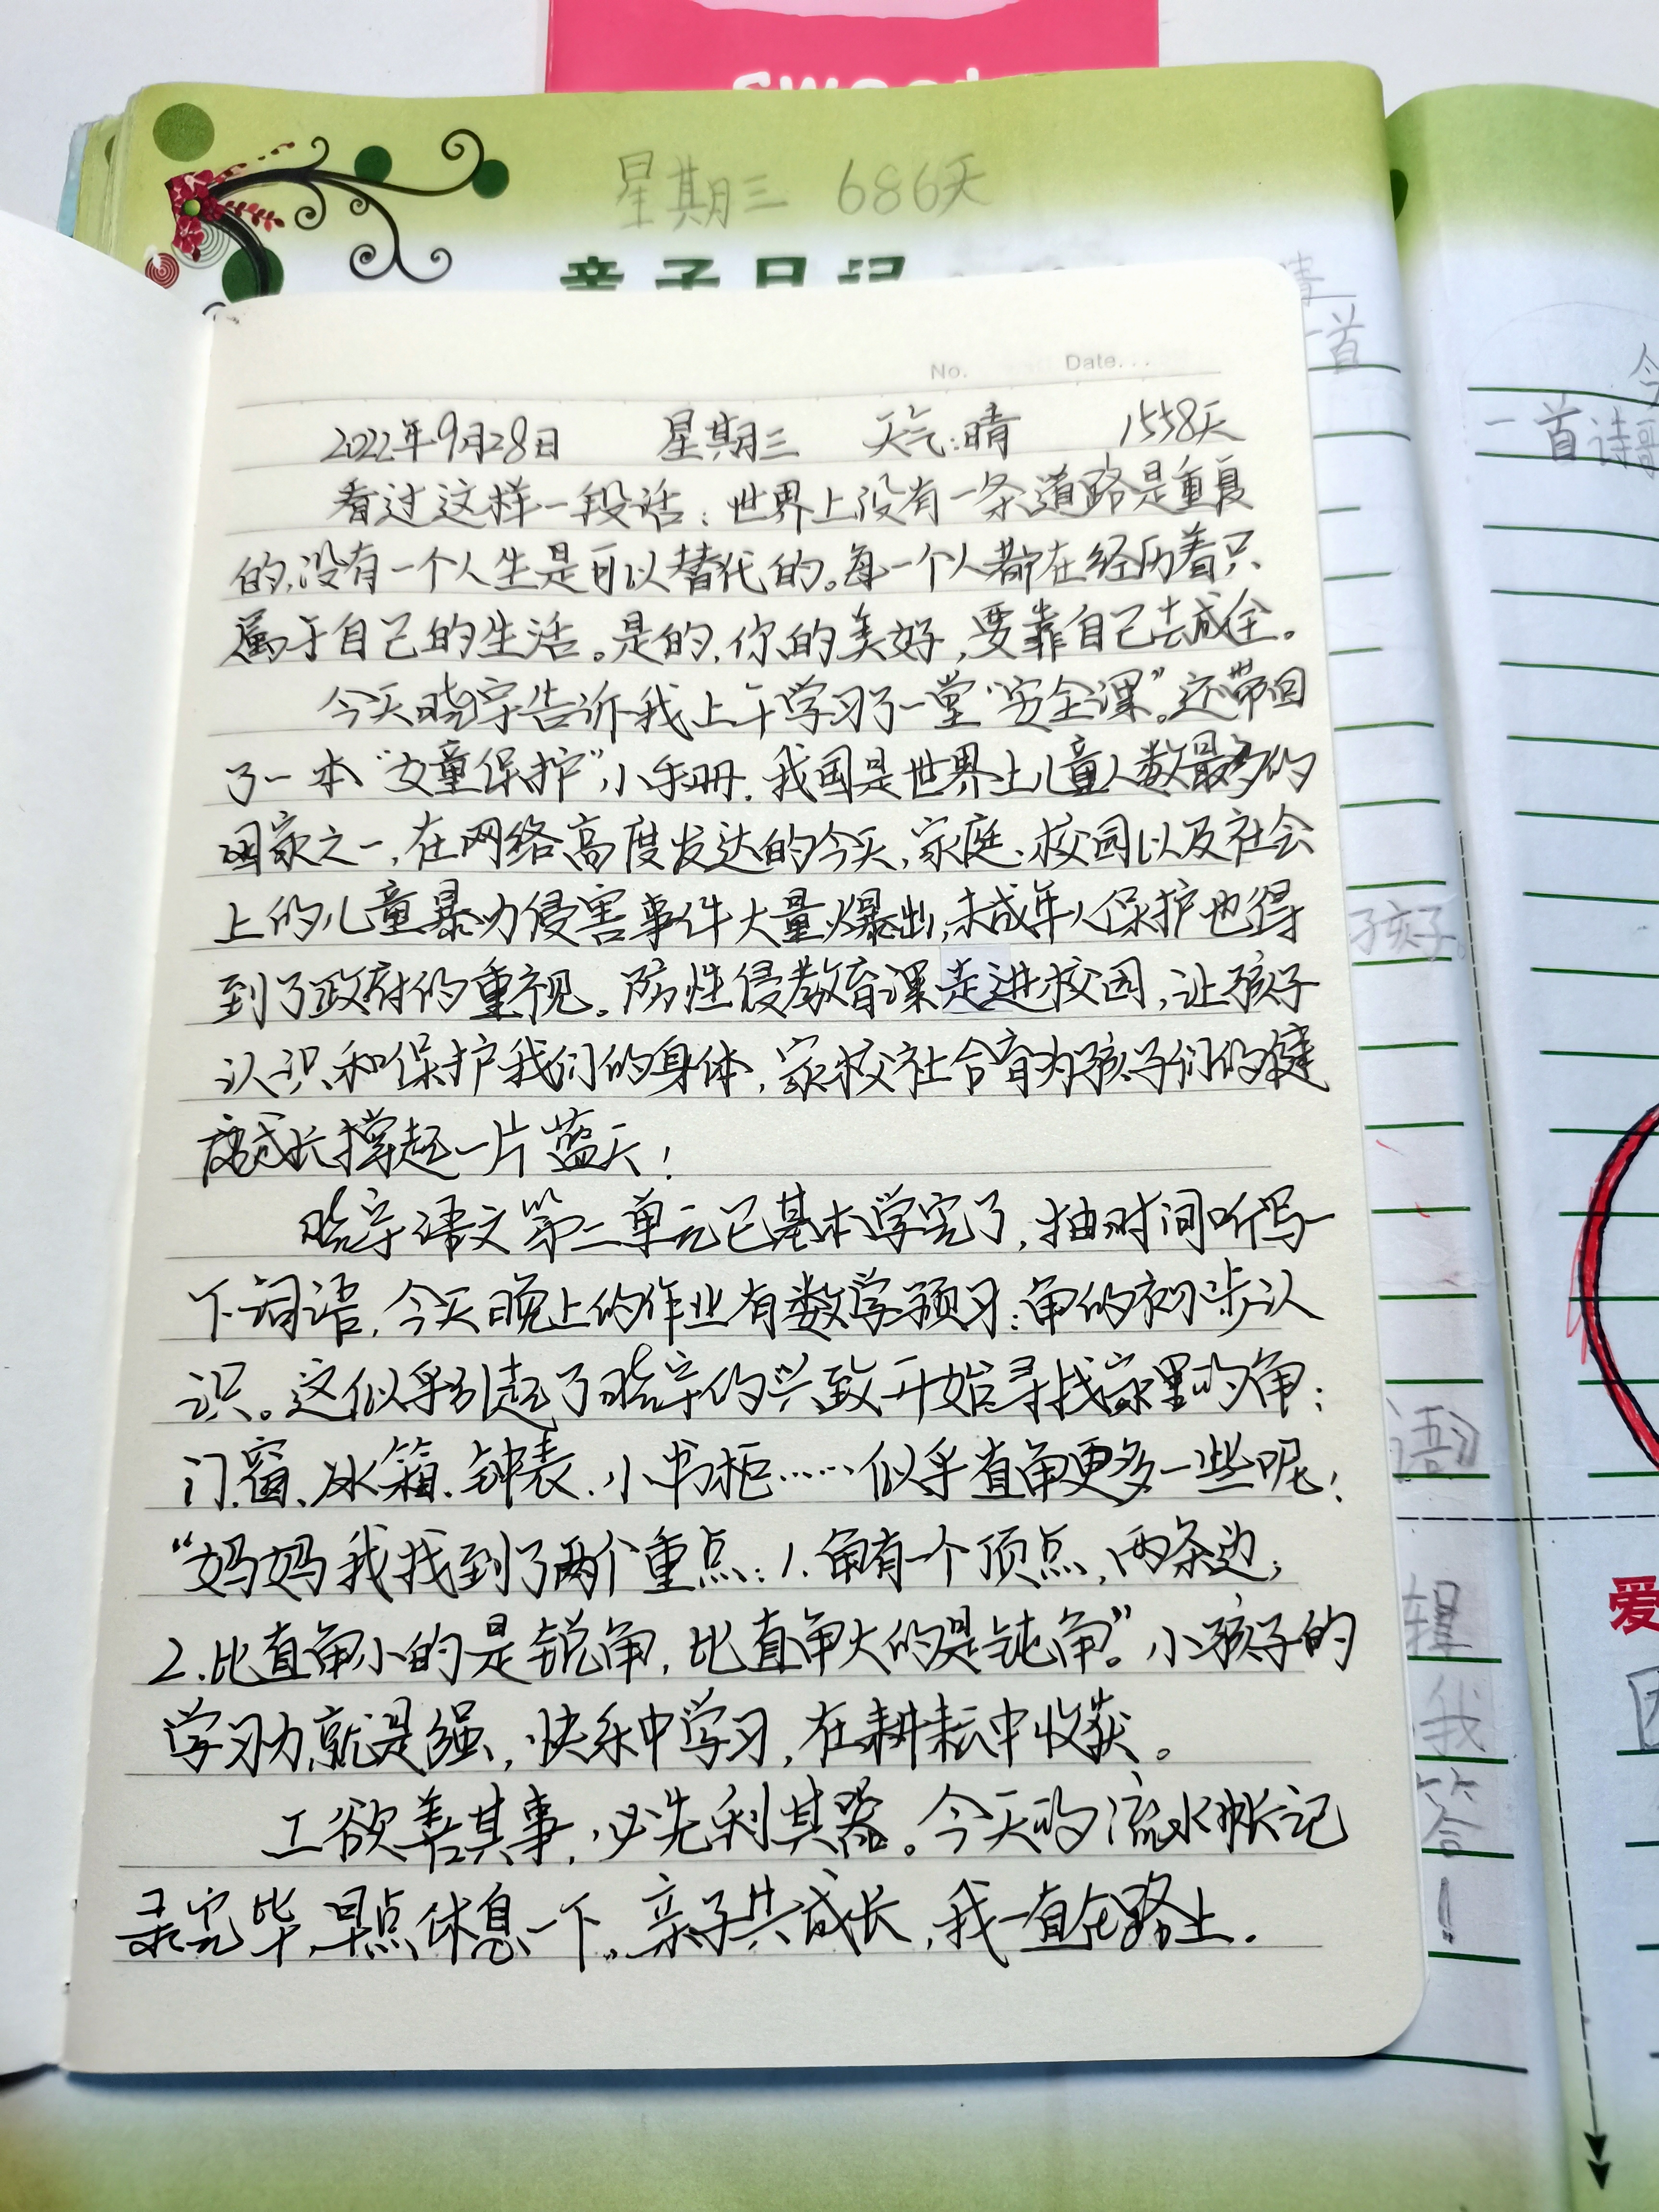 星期三 686天
亲子日记
No. Date...
2022年9月28日 星期三 天气:晴 1558天
看过这样一段话:世界上没有一条道路是重复
的,没有一个人生是可以替代的。每一个人都在经历着只
属于自己的生活。是的,你的美好,要靠自己去成全。
今天晓宇告诉我上午学习了一堂“安全课”。还带回
了一本“女童保护”小手册.我国是世界上儿童人数最多的
国家之一,在网络高度发达的今天,家庭、校园以及社会
上的儿童暴力侵害事件大量爆出,未成年人保护也得
到了政府的重视。防性侵教育课走进校园,让孩子
认识和保护我们的身体,家校社合育为孩子们的健
康成长撑起一片蓝天!
晓宇语文第二单元已基本学完了,抽时间听写一
下词语,今天晚上的作业有数学预习:角的初步认
识。这似乎引起了晓宇的兴致开始寻找家里的角:
门窗、冰箱、钟表、小书柜……似乎直角更多一些呢!
“妈妈我找到了两个重点:1.角有一个顶点,两条边;
2.比直角小的是锐角,比直角大的是钝角。”小孩子的
学习力就是强,快乐中学习,在耕耘中收获。
工欲善其事,必先利其器。今天的流水帐记
录完毕,早点休息一下。亲子共成长,我一直在路上.
晴
一首
孩子。
语》
辑
我
答!
一首诗歌
爱